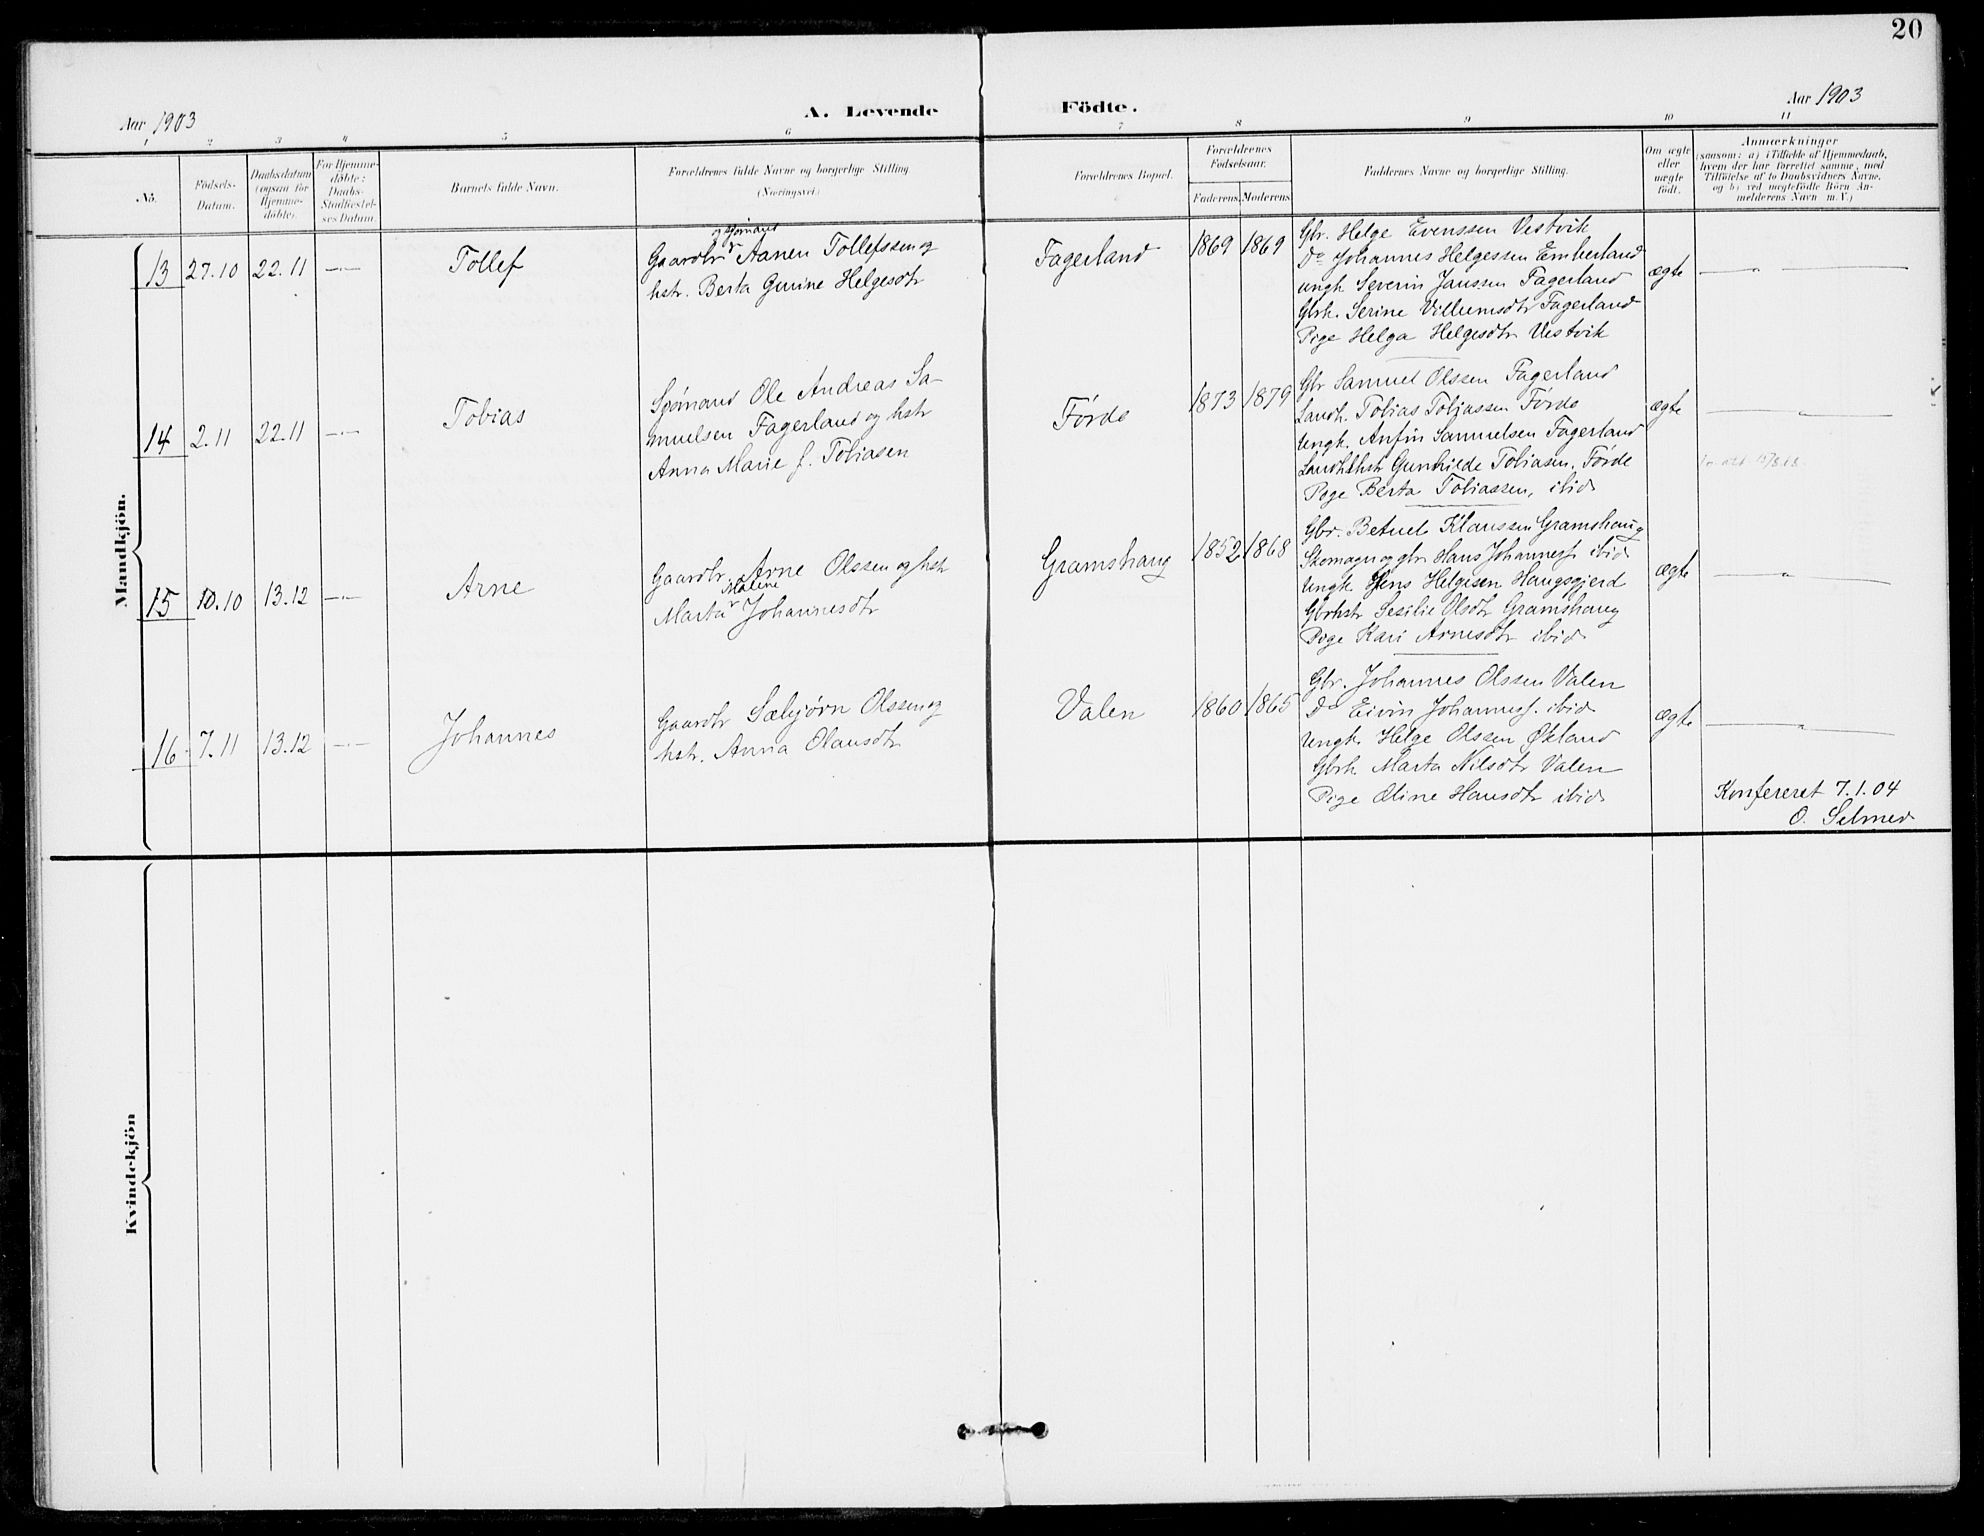 20
Aar 1903
A. Levende Födte.
Aar 1903
1 2 3 4 5 6 7 8 9 10 11
No.
Födsels-Datum.
Daabsdatum (ogsaa for Hjemme-döbte).
For Hjemme-döbte: Daabs-Stadfæstel-ses Datum.
Barnets fulde Navn.
Forældrenes fulde Navne og borgerlige Stilling
(Næringsvei.)
Forældrenes Bopæl.
Forældrenes Födselsaar.
Faderens. Moderens
Faddernes Navne og borgerlige Stilling.
Om ægte eller uægte födt.
Anmærkninger
(saasom: a) i Tilfælde af Hjemmedaab,
hvem der har forrettet samme, med
Tilföielse af to Daabsvidners Navne,
og b) ved uægtefödte Börn An-
melderens Navn m. V.)
Mandkjön.
13 27.10 22.11 —„—
Tollef
og sjømand
Gaardbr. Aanen Tollefssen og
hstr. Berta Gurine Helgesdtr
Fagerland
1869 1869
Gbr. Helge Evenssen Vestvik
Do Johannes Helgessen Emberland
ungk Severin Janssen Fagerland
Gbrh. Serine Villumsdtr Fagerland
Pige Helga Helgesdtr Vestvik
ægte
—„—
14 2.11 22.11 —„—
Tobias
Sjømand Ole Andreas Sa-
muelsen Fagerland og hstr
Anna Marie f. Tobiasen
Førde
1873 1879
Gbr Samuel Olssen Fagerland
Landh. Tobias Tobiassen Førde
Ungk. Anfin Samuelsen Fagerland
Landhhstr Gunhilde Tobiasen, Førde
Pige Berta Tobiassen, ibid
ægte
—„—
15 10.10 13.12 —„—
Arne
Gaardbr. Arne Olssen og hstr
Malene
Marta Johannesdtr
Gramshaug
1852 1868
Gbr. Betuel Klaussen Gramshaug
Skomager og gbr Hans Johannesf ibid
Ungk Jens Helgesen Haugsgjerd
Gbrhstr Sesilie Olsdtr Gramshaug
Pige Kari Arnesdtr ibid
ægte
—„—
16 7.11 13.12 —„—
Johannes
Gaardbr Sæbjørn Olssen og
hstr. Anna Olausdtr
Valen
1860 1865
Gbr. Johannes Olssen Valen
Do Eivin Johannesf. ibid
Ungk. Helge Olssen Økland
Gbrh Marta Nilsdtr Valen
Pige Oline Hansdtr ibid
ægte
—„—
Konfereret 7.1.04
O. Selmer
Kvindekjön